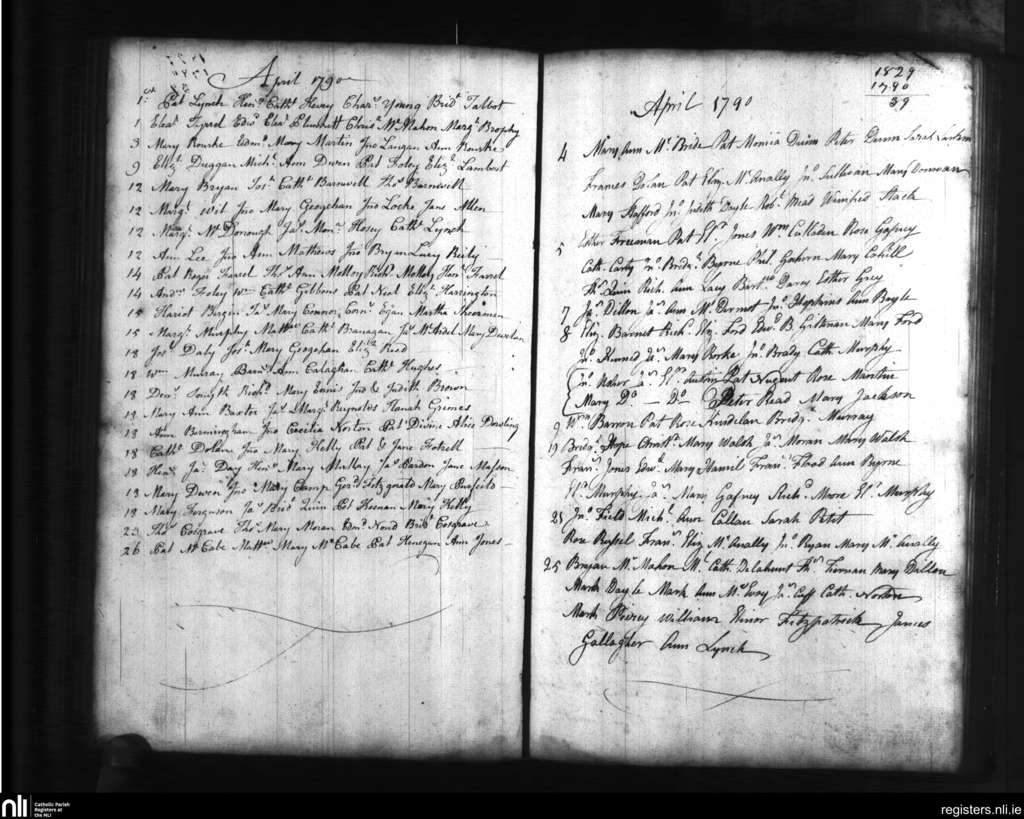 April 1790
1st Pat Lynch Heny Cathe Henry Chars Young Bridt Talbot
1 Elear Tyrrel Edwd Elear Plunkett Christr Mc Mahon Margt Brophy
3 Mary Rourke Edmd Mary Martin Jno Langan Ann Rourke
9 Elizh Duggan Michl Ann Dwen Pat Foley Elizh Lambert
12 Mary Bryan Josh Cathe Barnwell Thos Barnwell
12 Margt Jno Mary Geoghan Jno Locke Jane Allen
12 Margt Mc Donough Jas Hosey Cathe Lynch
12 Ann Lee Jno Ann Mathews Jno Bryan Lucy Reily
14 Pat Roger Farrel Thos Ann Molloy Richd Molloy Heny Farrel
14 Andw Foley Wm Cathe Gibbons Pat Neal Elizh Harrington
14 Hariot Jas Mary Connor Corns Egan Martha
15 Margt Murphy Mattw Cathe Branagan Jas Mary
18 Josh Daly Josh Mary Geoghan Elizth Reed
18 Wm Murray Barnd Ann Calaghan Cathe Hughes
18 Smyth Richd Mary Ennis Jno & Judith Brown
14 Mary Ann Baxter Jas Margt Reynolds Hanah Grimes
18 Ann Bermingham Jno Cecilia Norton Pat Divine Alice Dowling
18 Cathe Jno Mary Helly Pat & Jane
18 Heny Jas Day Heny Mary Jas Bardon Jane Masson
13 Mary Dwen Jno Mary Camp Geo Fitzgerald Mary
18 Mary Ferguson Jas Quin Pat Heenan Mary Kelly
23 Thos Cosgrave Thos Mary Moran Edmd Bridt Cosgrave
26 Pat Mc Cabe Mattw Mary Mc Cabe Pat Ann Jones
1829
1790
39
April 1790
4 Mary Ann Mc Bride Pat Monica Peter Dunn Sarah
Frances Dolan Pat Eliz Mc Anally Jno Sullivan Mary Donovan
Mary Stafford Jno Judith Doyle Robt Mead Winifred Stack
5 Esther Freeman Pat Jones Wm Rose Gafney
Cath. Carty Jno Bridgt Byrne Phil. Mary Cahill
Ths Quin Rich. Ann Lacy Bartw Darcy Esther Grey
7 Jas Dillon Jas Ann Mc Dermot Jno Hopkins Ann Boyle
8 Eliz. Barnet Rich. Eliz. Ford Edwd B. Mary Ford
Jno Kinned Jas Mary Rorke Jno Brady Cath. Murphy
Jn. Maher Jas Austin Pat Nugent Rose
Mary Do — Do Peter Read Mary Jackson
9 Wm Barron Pat Rose Kindelan Bridgt Murray
19 Bridgt Hope Christr Mary Walsh Jas Moran Mary Walsh
Frans Jones Edwd Mary Hamill Frans Flood Ann Byrne
Murphy Jas Mary Gafney Richd Moore Murphy
21 Jno Field Michl Ann Callan Sarah Petit
Rose Russel Frans Eliz. Mc Anally Jno Ryan Mary Mc Anally
25 Bryan Mc Mahon Ml Cath. Delahunt Ths Tiernan Mary Dillon
Mark Doyle Mark Ann Mc Evoy Jas Cuff Cath. Norton
Mark William Elinor Fitzpatrick James
Gallagher Ann Lynch
nli
Catholic Parish
Registers at
the NLI
registers.nli.ie